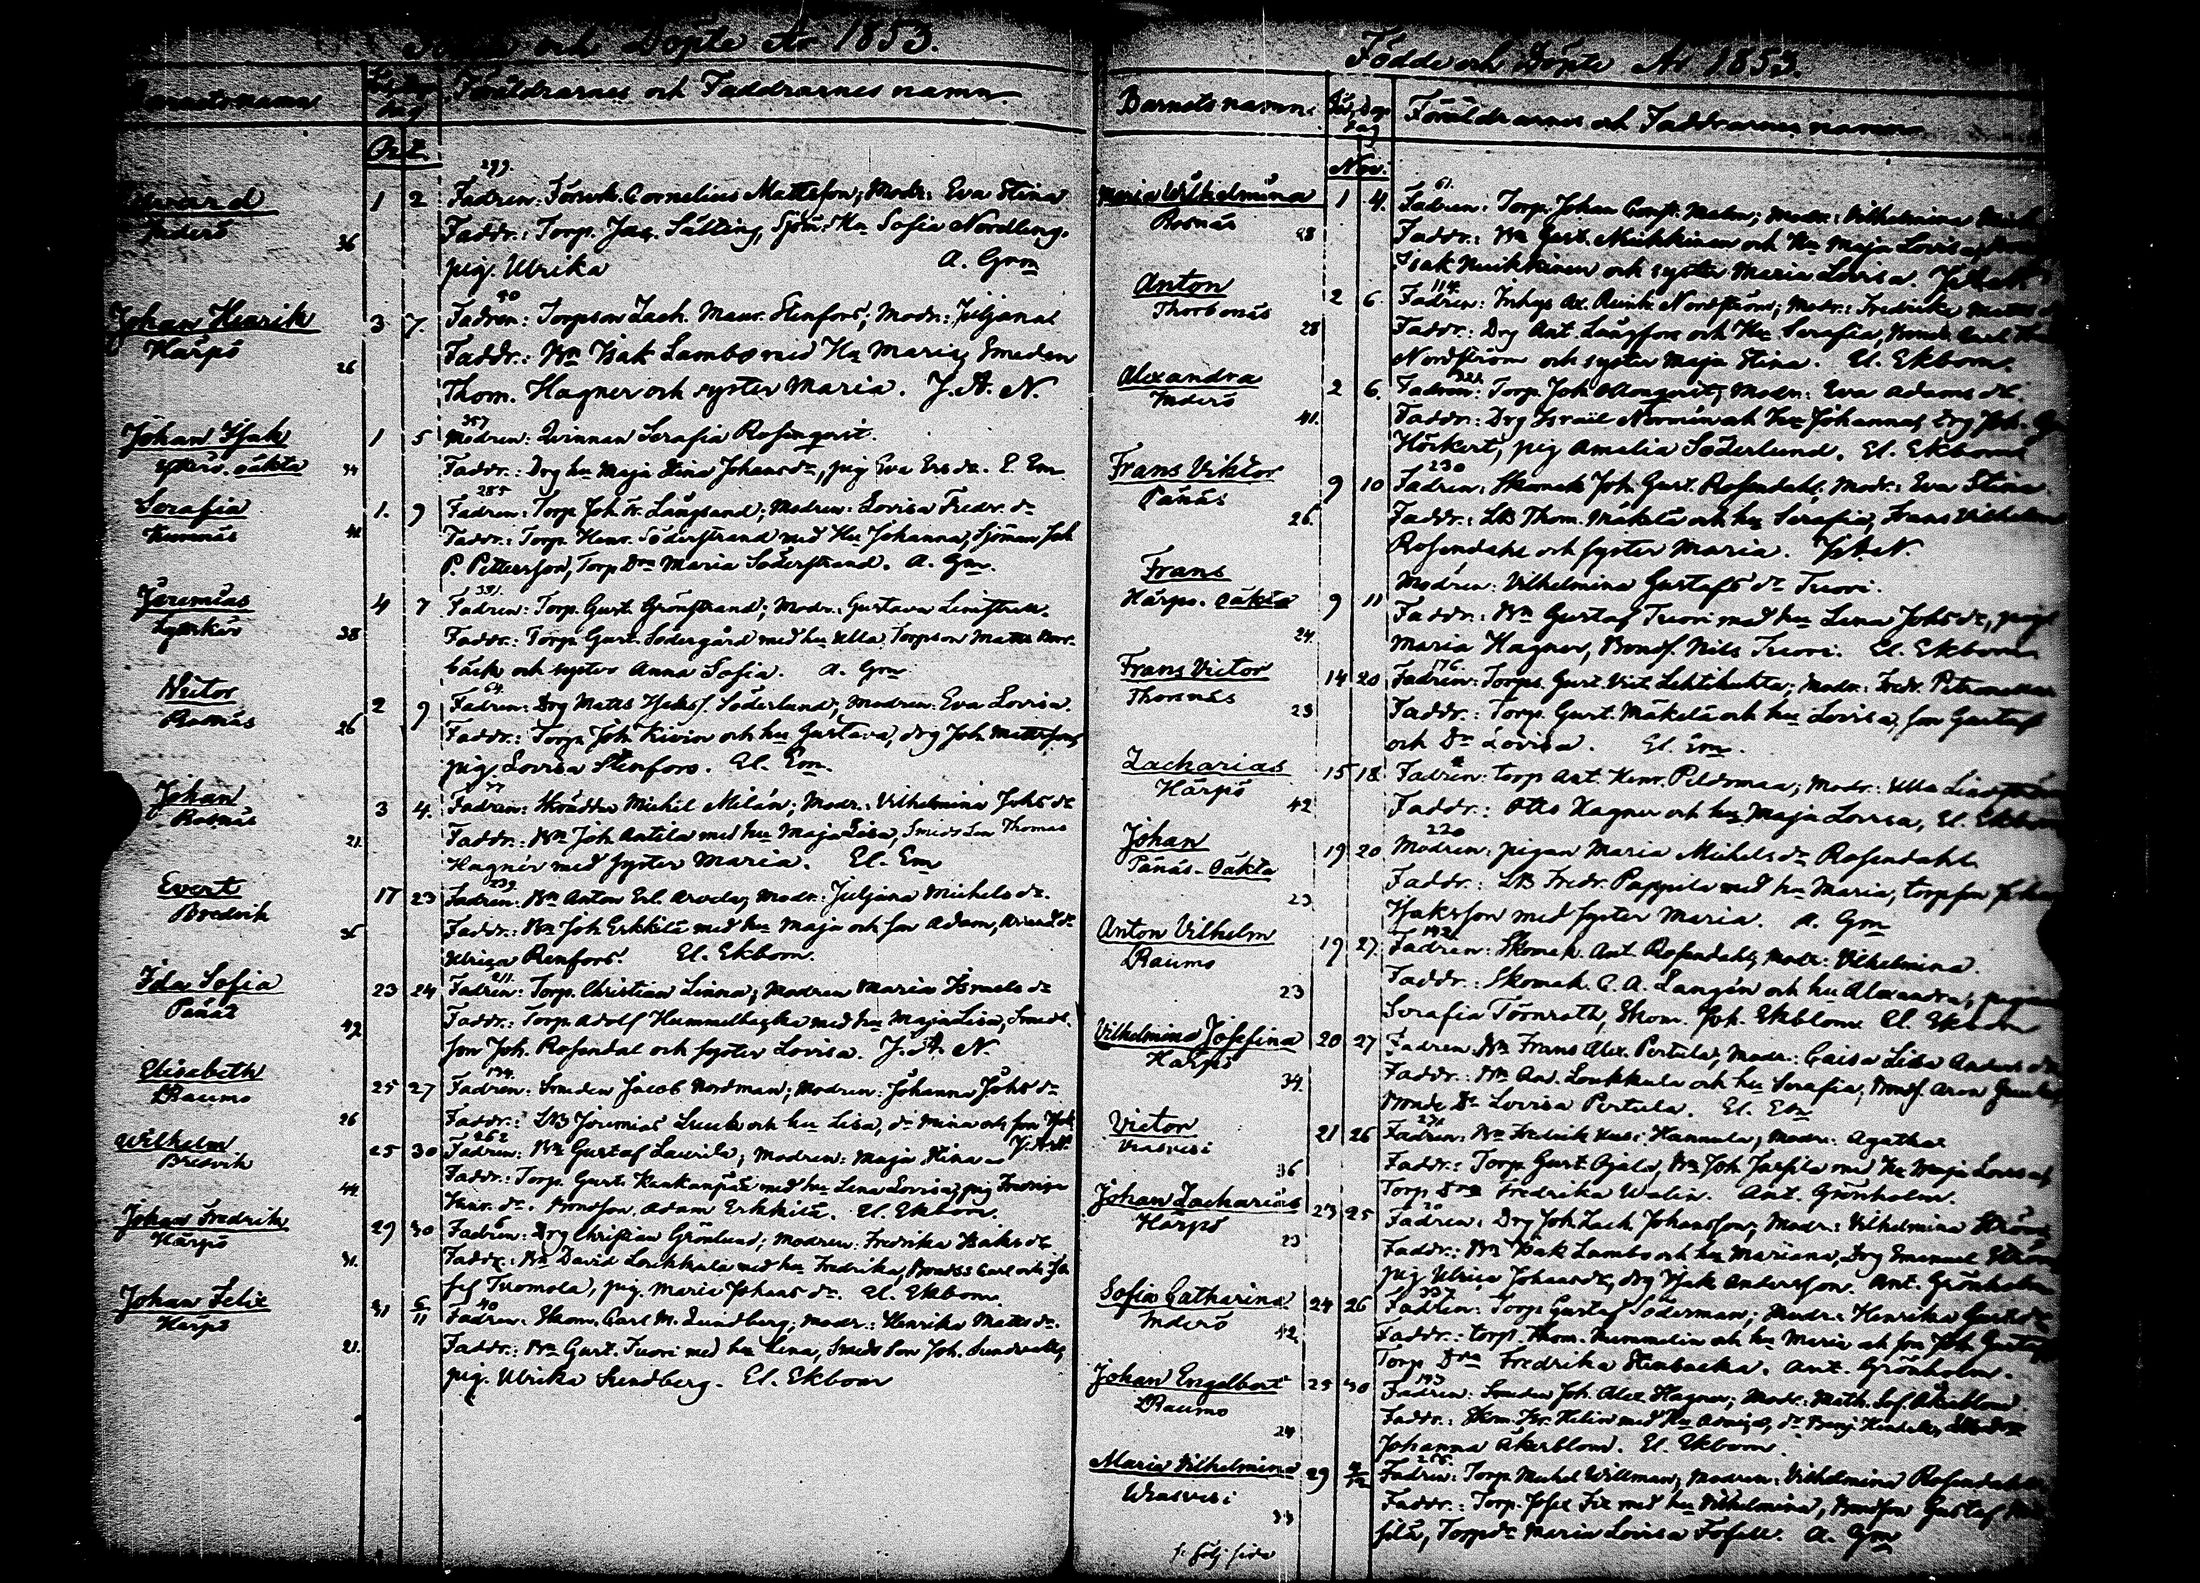 och Döpte År 1853.
Barnets namn
dag
Föräldrarnes och Faddrarnes namn
Oct.
299.
Inderö
36
1 2
Fadren: Cornelius Mattsson; Modr: Eva Stina
Faddr.: Torp. Sälting, Sjöm. Hu Sofia Nordling,
pig. Ulrika A. Grm
Johan Henrik
Härpö
26
3 7.
40
Fadren: Torpson Zach. Maur. Stenfors; Modr: Juljana
Faddr.: Bn Isak Lambo med Hu Maria, Smeden
Thom. Hagner och syster Maria. J. A. N.
Johan Isak
oäkta
34
1 5
357
Modren: Qvinnan Serafia Rosinqvist.
Faddr.: Drg hu Maja Stina Johansdr, pig Eva Ersdr. E. Em
Serafia
41
1. 9
285
Fadren: Torp Joh Fr. Långsand; Modren: Lovisa Fredr. dr
Faddr.: Torp. Henr. Söderstrand med Hu Johanna, Sjöman Joh
P. Pettersson, Torp Dr Maria Söderstrand. A. Grm.
Jeremias
38
4 7
Fadren: Torp. Gust. Grönstrand; Modr: Gustava
Faddr.: Torp. Gust. Södergård med hu Ulla, Torpson Matts
bäck och syster Anna Sofia. A. Grm
Victor
Rosnäs
26
2 9
64.
Fadren: Drg Matts Isaks. Söderlund; Modren: Eva Lovisa.
Faddr.: Torp. Joh. Kivior och hu Gustava, drg Joh. Mattsson,
pig Lovisa Stenfors. El. Em.
Johan
Rosnäs
21.
3 4.
Fadren: Skräddar Michel Milén; Modr.: Vilhelmina Johsdr
Faddr.: Bn Joh Antila med hu Maja Lisa, Smeds Son Thomas
Hagnér med syster Maria. El. Em
Evert
Bredvik
36
17 23
239
Fadren: Bn Anton Erl. Arvela; Modr: Juljana Michelsdr.
Faddr.: Bn Joh Erkkilä med hu Maja och son Adam,
Ulrica Renfors. El. Ekbom.
Ida Sofia
Pånäs
42
23 24
211.
Fadren: Torp. Christian Linna; Modren Maria Israelsdr
Faddr.: Torp. Adolf Hummelbacka med hu Maja Lisa, Smeds
son Joh. Rosendal och syster Lovisa. J. A. N.
Elisabeth
LRaumo
26
25 27
194.
Fadren: Smeden Jacob Nordman; Modren: Johanna Johsdr
Faddr.: LB Jeremias Luuk och hu Lisa, dr Mina och son Isak
J. A. N.
Wilhelm
Bredvik
44
25 30
262
Fadren: Bn Gustaf Laurila; Modren: Maja Stina
Faddr.: Torp. Gust. Kankanpää med hu Lena Lovisa, pig Fredrica
Henr. dr. Bondson Adam Erkkilä. El. Ekbom.
Johan Fredrik
Härpö
31.
29 30
Fadren: Drg Christian Grönlund; Modren: Fredrika Isaksdr
Faddr.: Bn David Loukkala med hu Fredrika, Bondss Carl och
Tuomola, pig. Maria Johansdr. El. Ekbom.
Johan Felix
Härpö
21.
31 6/11
40
Fadren: Skom. Carl M. Lundberg; Modr: Henrika Mattsdr.
Faddr.: Bn Gust. Tuori med hu Lena, Smeds Son Joh. Sundvall,
pig. Ulrika Lundberg. El. Ekbom
Födde och Döpte År 1853.
Barnets namn.
Föd. Dop
dag
Föräldrarnes och Faddrarnes namn
Nov.
Maria Wilhelmina
Rosnäs
28
1 4.
61.
Fadren: Torp. Johan Const. Malm; Modr: Vilhelmina
Faddr.: Bn Gust. Muikkinen och Hu Maja Lovisa,
Isak Muikkinen och syster Maria Lovisa.
Anton
Thorbonäs
28
2 6.
114.
Fadren: Inhys Ad. Reink. Nordström; Modr: Fredrika
Faddr.: Drg Ant. Långfors och Hu Serafia,
Nordström och syster Maja Stina. El. Ekbom.
Alexandra
Inderö
41.
2 6.
Fadren: Torp. Joh. Modr: Eva Adamsdr.
Faddr.: Drg Israel Norrén och hu Johanna, Drg Joh.
Höckert, pig Amalia Söderlund. El. Ekbom
Frans Viktor
Pånäs
26.
9 10
230
Fadren: Skomak. Joh. Gust. Rosendahl. Modr: Eva Stina.
Faddr.: LB Thom. Mäkelä och hu Serafia, Frans Vilhelm
Rosendahl och syster Maria. J. A. N.
Frans
Härpö. oäkta
24.
9 11
Modren: Vilhelmina Gustafsdr Tuori.
Faddr.: Bn Gustaf Tuori med hu Lena Johsdr, pig
Maria Hagner, Bonds. Nils Tuori. El. Ekbom
Frans Victor
Thornäs
23
14 20
176.
Fadren: Torp. Gust. Vict. Lehtihuhta; Modr: Fredr. Petronella
Faddr.: Torp. Gust. Mäkelä och hu Lovisa, son Gustaf
och Dr Lovisa. El. Em.
Zacharias
Härpö
42
15 18.
Fadren: Torp Ant. Henr. Peldomaa; Modr: Ulla
Faddr.: Otto Hagner och hu Maja Lovisa, El. Ekbom
Johan
Pånäs. Oäkta
23
19 20
220
Modren: pigan Maria Michelsdr Rosendahl
Faddr.: LB Fredr. Pappila med hu Maria, torpson Johan
Isaksson med syster Maria. A. Grm
Anton Vilhelm
LRaumo
23
19 27.
192.
Fadren: Skomak. Ant. Rosendahl; Modr: Vilhelmina.
Faddr.: Skomak. C. A. Langén och hu Alexandra, pigan
Serafia Töönroth, Skom. Joh. Ekblom El. Ekbom
Vilhelmina Josefina
Härpö
34.
20 27
Fadren Bn Frans Alex. Pertula; Modr: Caisa Lisa Andersdr
Faddr.: Bn An. Loukkala och hu Serafia, Bonds. Aron
Bonde Dr Lovisa Pertula. El. Em
Victor
Vrasvesi
36
21 26
Fadren: Bn Fredrik Kusi Hannula; Modr: Agatha
Faddr.: Torp. Gust. Ojala, Bn Joh. Jaffila med hu Maja Lovisa,
Torp Dr Fredrika Walin. Ant. Grönholm.
Johan Zacharias
Härpö
23
23 25
Fadren: Drg Joh. Zach. Johansson; Modr: Vilhelmina Ström
Faddr.: Bn Isak Lambo och hu Mariana, Drg Emanuel Ström
pig Ulrica Johansdr, drg Isak Andersson. Ant. Grönholm
Sofia Catharina
Inderö
42
24 26
337
Fadren: Torp Gustaf Söderman; Modr: Henrika Gustsdr
Faddr.: torp. Thom. Nummelin och hu Maria och son Joh. Gustaf
Torp Dra Fredrika Stenbacka. Ant. Grönholm.
Johan Engelbert
LRaumo
24
25 30
193
Fadren: Smeden Joh. Alex Hagner; Modr: Math. Sof. Åkerblom
Faddr.: Skom. Fr. Helin med Hu
Johanna Åkerblom. El. Ekbom.
Maria Vilhelmina
Wrasvesi
33
29 4/12
Fadren: Torp. Michel Willman; Modren: Vilhelmina Rosendahl
Faddr.: Torp. Josef Fix med hu Vilhelmina, Bondson Gustaf
filä, Torpdr Maria Lovisa Forsell. A. Grm
följ. sida